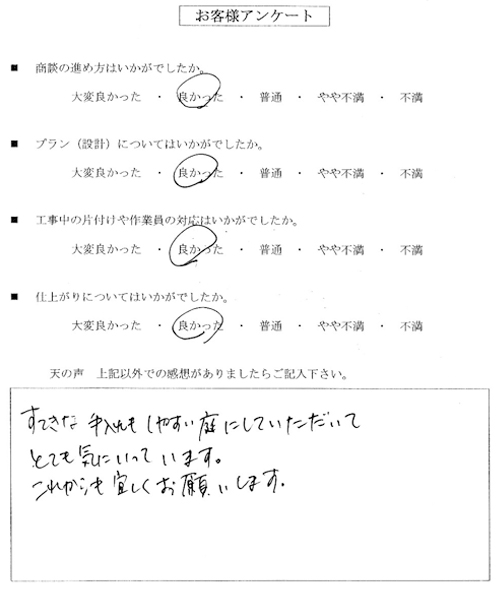 お客様アンケート
■ 商談の進め方はいかがでしたか。
大変良かった ・ 良かった ・ 普通 ・ やや不満 ・ 不満
■ プラン（設計）についてはいかがでしたか。
大変良かった ・ 良かった ・ 普通 ・ やや不満 ・ 不満
■ 工事中の片付けや作業員の対応はいかがでしたか。
大変良かった ・ 良かった ・ 普通 ・ やや不満 ・ 不満
■ 仕上がりについてはいかがでしたか。
大変良かった ・ 良かった ・ 普通 ・ やや不満 ・ 不満
天の声 上記以外での感想がありましたらご記入下さい。
すてきな 手入れも しやすい 庭にしていただいて
とても気にいって います。
これからも 宜しくお願いします。